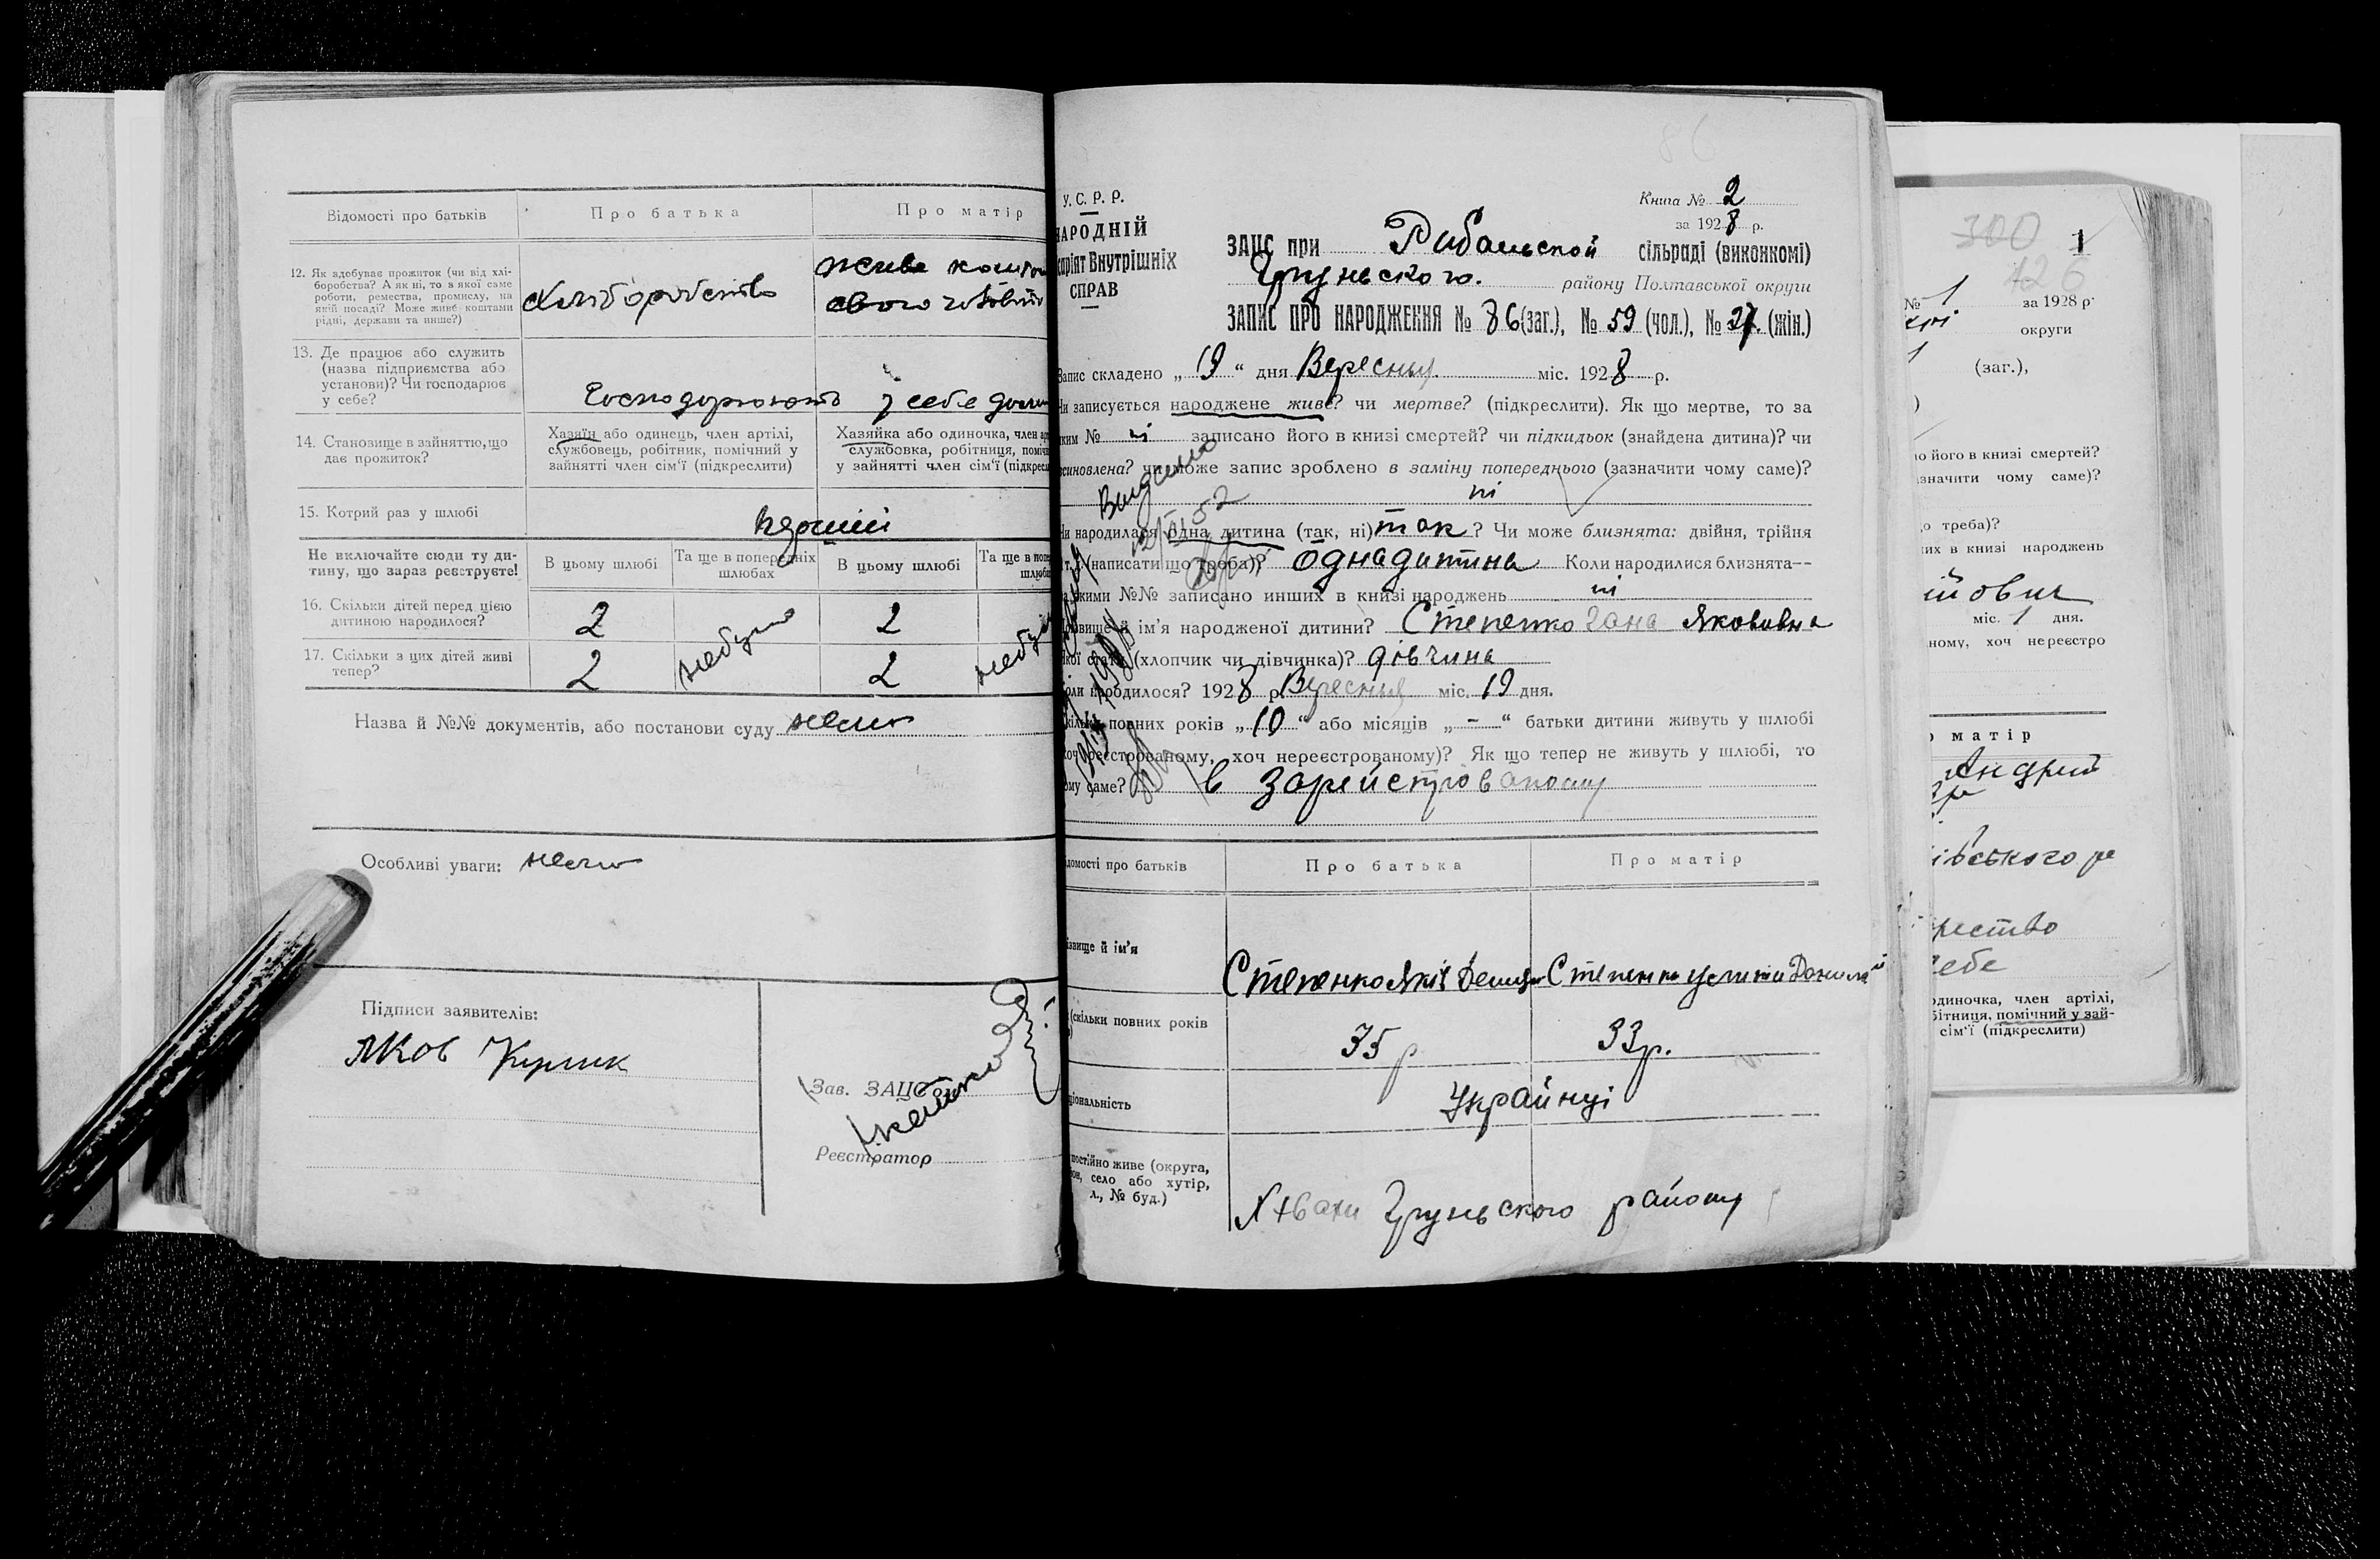 Відомості про батьків
Про батька
Про матір
12. Як здобуває прожиток (чи від хлі-
боробства? А як ні, то в якої саме
роботи, ремества, промислу, на
якій посаді? Може живе коштами
рідні, держави та инше?)
Хліборобство
живе кошт
свого чоловіка
13. Де працює або служить
(назва підприємства або
установи)? Чи господарює
у себе?
Господорюють у себе дома
14. Становище в зайняттю, що
дає прожиток?
Хазяїн або одинець, член артілі,
службовець, робітник, помічний у
зайнятті член сім'ї (підкреслити)
Хазяйка або одиночка, член ар
службовка, робітниця, поміч
у зайнятті член сім'ї (підкресл
15. Котрий раз у шлюбі
Не включайте сюди ту ди-
тину, що зараз реєструєте!
В цьому шлюбі
Та ще в попередніх
шлюбах
В цьому шлюбі
Та ще в попе
шлюба
16. Скільки дітей перед цією
дитиною народилося?
2
небуло
2
небул
17. Скільки з цих дітей живі
тепер?
2
2
Назва й №№ документів, або постанови суду нема
Особливі уваги: нема
Підписи заявителів:
Яков
Зав. ЗАЦС'ом
Реєстратор
86
У. С. Р. Р.
НАРОДНІЙ
саріят Внутрішніх
СПРАВ
Книга № 2
за 1928 р.
ЗАЦС при Рибальской сільраді (виконкомі)
Груньского. району Полтавської округи
ЗАПИС ПРО НАРОДЖЕННЯ № 86 (заг.), № 59 (чол.), № 27. (жін.)
Запис складено „ 19 “ дня Вересня міс. 1928 р.
Чи записується народжене живе? чи мертве? (підкреслити). Як що мертве, то за
яким № ні записано його в книзі смертей? чи підкидьок (знайдена дитина)? чи
всиновлена? чи може запис зроблено в заміну попереднього (зазначити чому саме)?
ні
Чи народилася одна дитина (так, ні) так? Чи може близнята: двійня, трійня
(написати що треба)? однадитина Коли народилися близнята—
якими №№ записано инших в книзі народжень ні
Прізвище й ім'я народженої дитини? Степенко Гана Яковивна
Якої статі (хлопчик чи дівчинка)? дівчина
Коли народилося? 1928 р. Вересня міс. 19 дня.
Скільки повних років „ 10 “ або місяців „ - “ батьки дитини живуть у шлюбі
(хоч реєстрованому, хоч нереєстрованому)? Як що тепер не живуть у шлюбі, то
чому саме? в зарейстрованому
Відомості про батьків
Про батька
Про матір
Прізвище й ім'я
Степенко Яків
Степенко
(скільки повних років
35 р
33 р.
ціональність
Українці
постійно живе (округа,
он, село або хутір,
л., № буд.)
Груньского району
300
1
126
№ 1 за 1928 р.
округи
1 (заг.),
)
о його в книзі смертей?
значити чому саме)?
о треба)?
их в книзі народжень
йович
міс. 1 дня.
ному, хоч нереєстро
о матір
івського ра
себе
одиночка, член артілі,
бітниця, помічний у зай-
сім'ї (підкреслити)